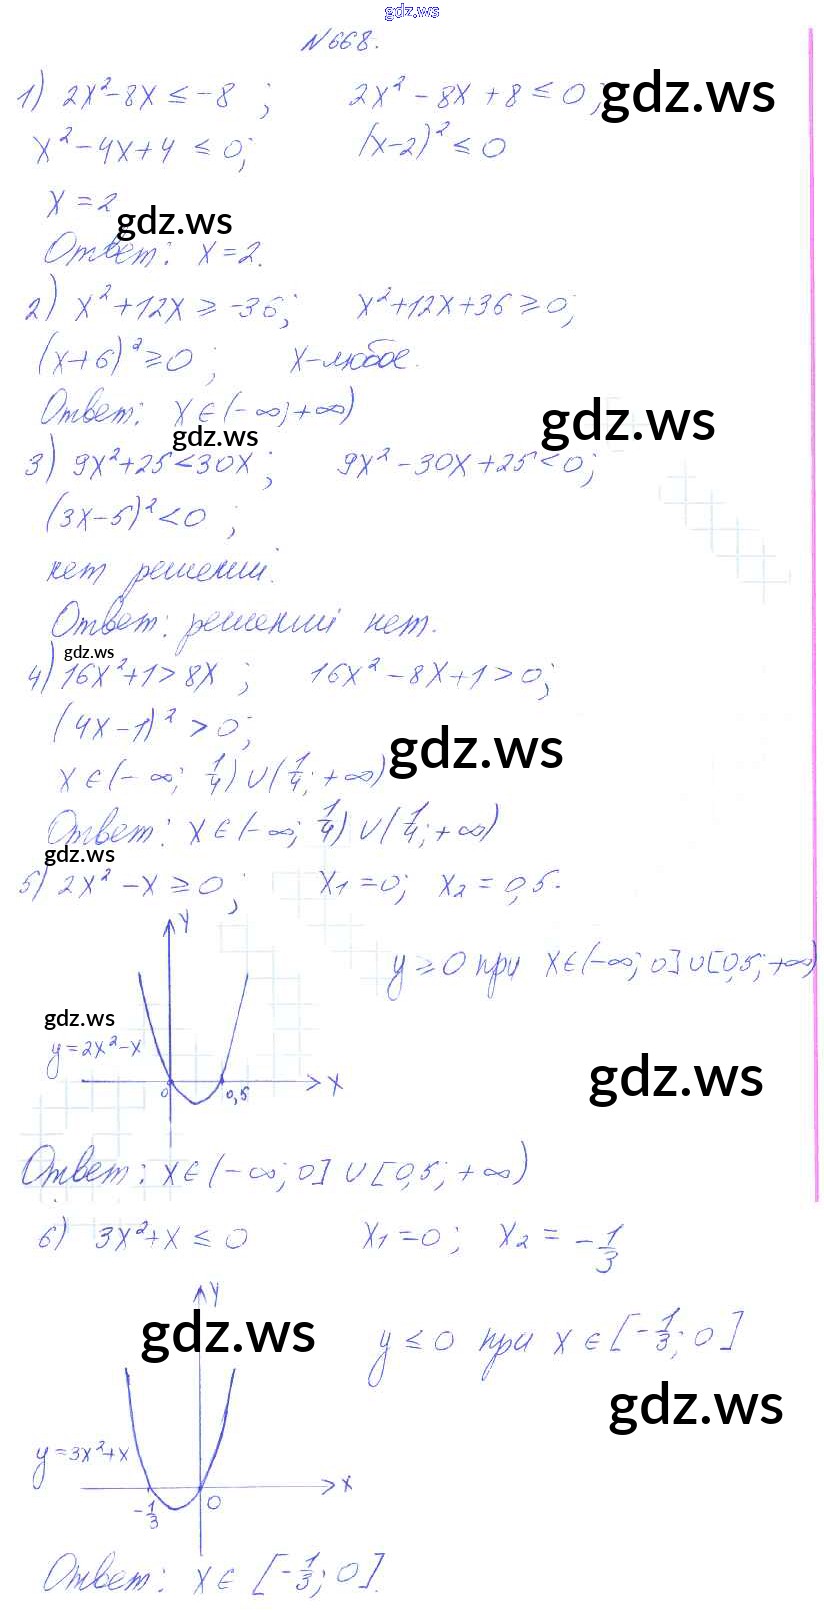 gdz.ws
N668.
1) 2x²-8x ≤ -8 ; 2x² - 8x + 8 ≤ 0; gdz.ws
x² - 4x + 4 ≤ 0; (x-2)² ≤ 0
x = 2
gdz.ws
Ответ: x = 2.
2) x² + 12x ≥ -36; x² + 12x + 36 ≥ 0;
(x+6)² ≥ 0 ; x - любое.
Ответ: x ∈ (-∞; +∞)
gdz.ws gdz.ws
3) 9x² + 25 < 30x ; 9x² - 30x + 25 < 0;
(3x-5)² < 0 ;
нет решений.
Ответ: решений нет.
gdz.ws
4) 16x² + 1 > 8x ; 16x² - 8x + 1 > 0;
(4x-1)² > 0;
gdz.ws
x ∈ (-∞; 1/4) ∪ (1/4; +∞)
Ответ: x ∈ (-∞; 1/4) ∪ (1/4; +∞)
gdz.ws
5) 2x² - x ≥ 0 ; x₁ = 0; x₂ = 0,5.
y
y ≥ 0 при x ∈ (-∞; 0] ∪ [0,5; +∞)
gdz.ws
y = 2x² - x
gdz.ws
0 0,5 x
Ответ: x ∈ (-∞; 0] ∪ [0,5; +∞)
6) 3x² + x ≤ 0 x₁ = 0 ; x₂ = -1/3
y
gdz.ws
y ≤ 0 при x ∈ [-1/3; 0]
gdz.ws
y = 3x² + x
-1/3 0 x
Ответ: x ∈ [-1/3; 0].